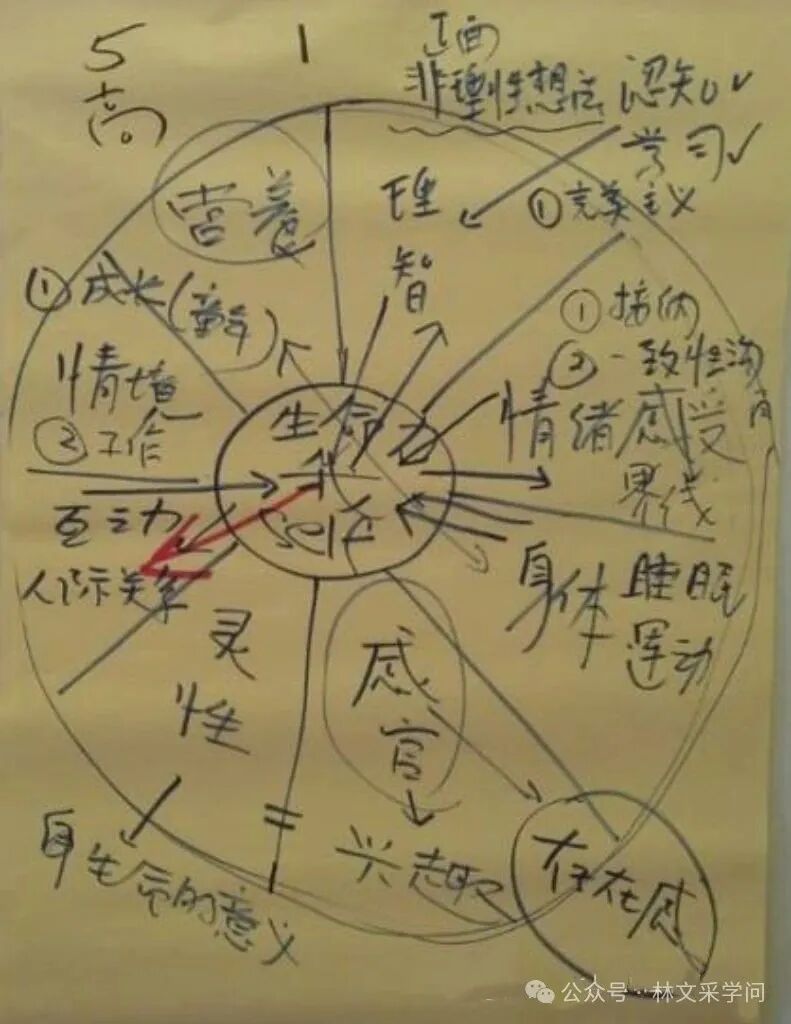 5
高
1
正面
非理性想法
认知
学习
①完美主义
营养
理智
①成长(童年)
情境
②工作
①接纳
②一致性沟
情绪感受
界线
生命力
我
self
互动力
人际关系
身体
睡眠
运动
灵性
感官
兴趣
存在感
的意义
公众号·林文采学问